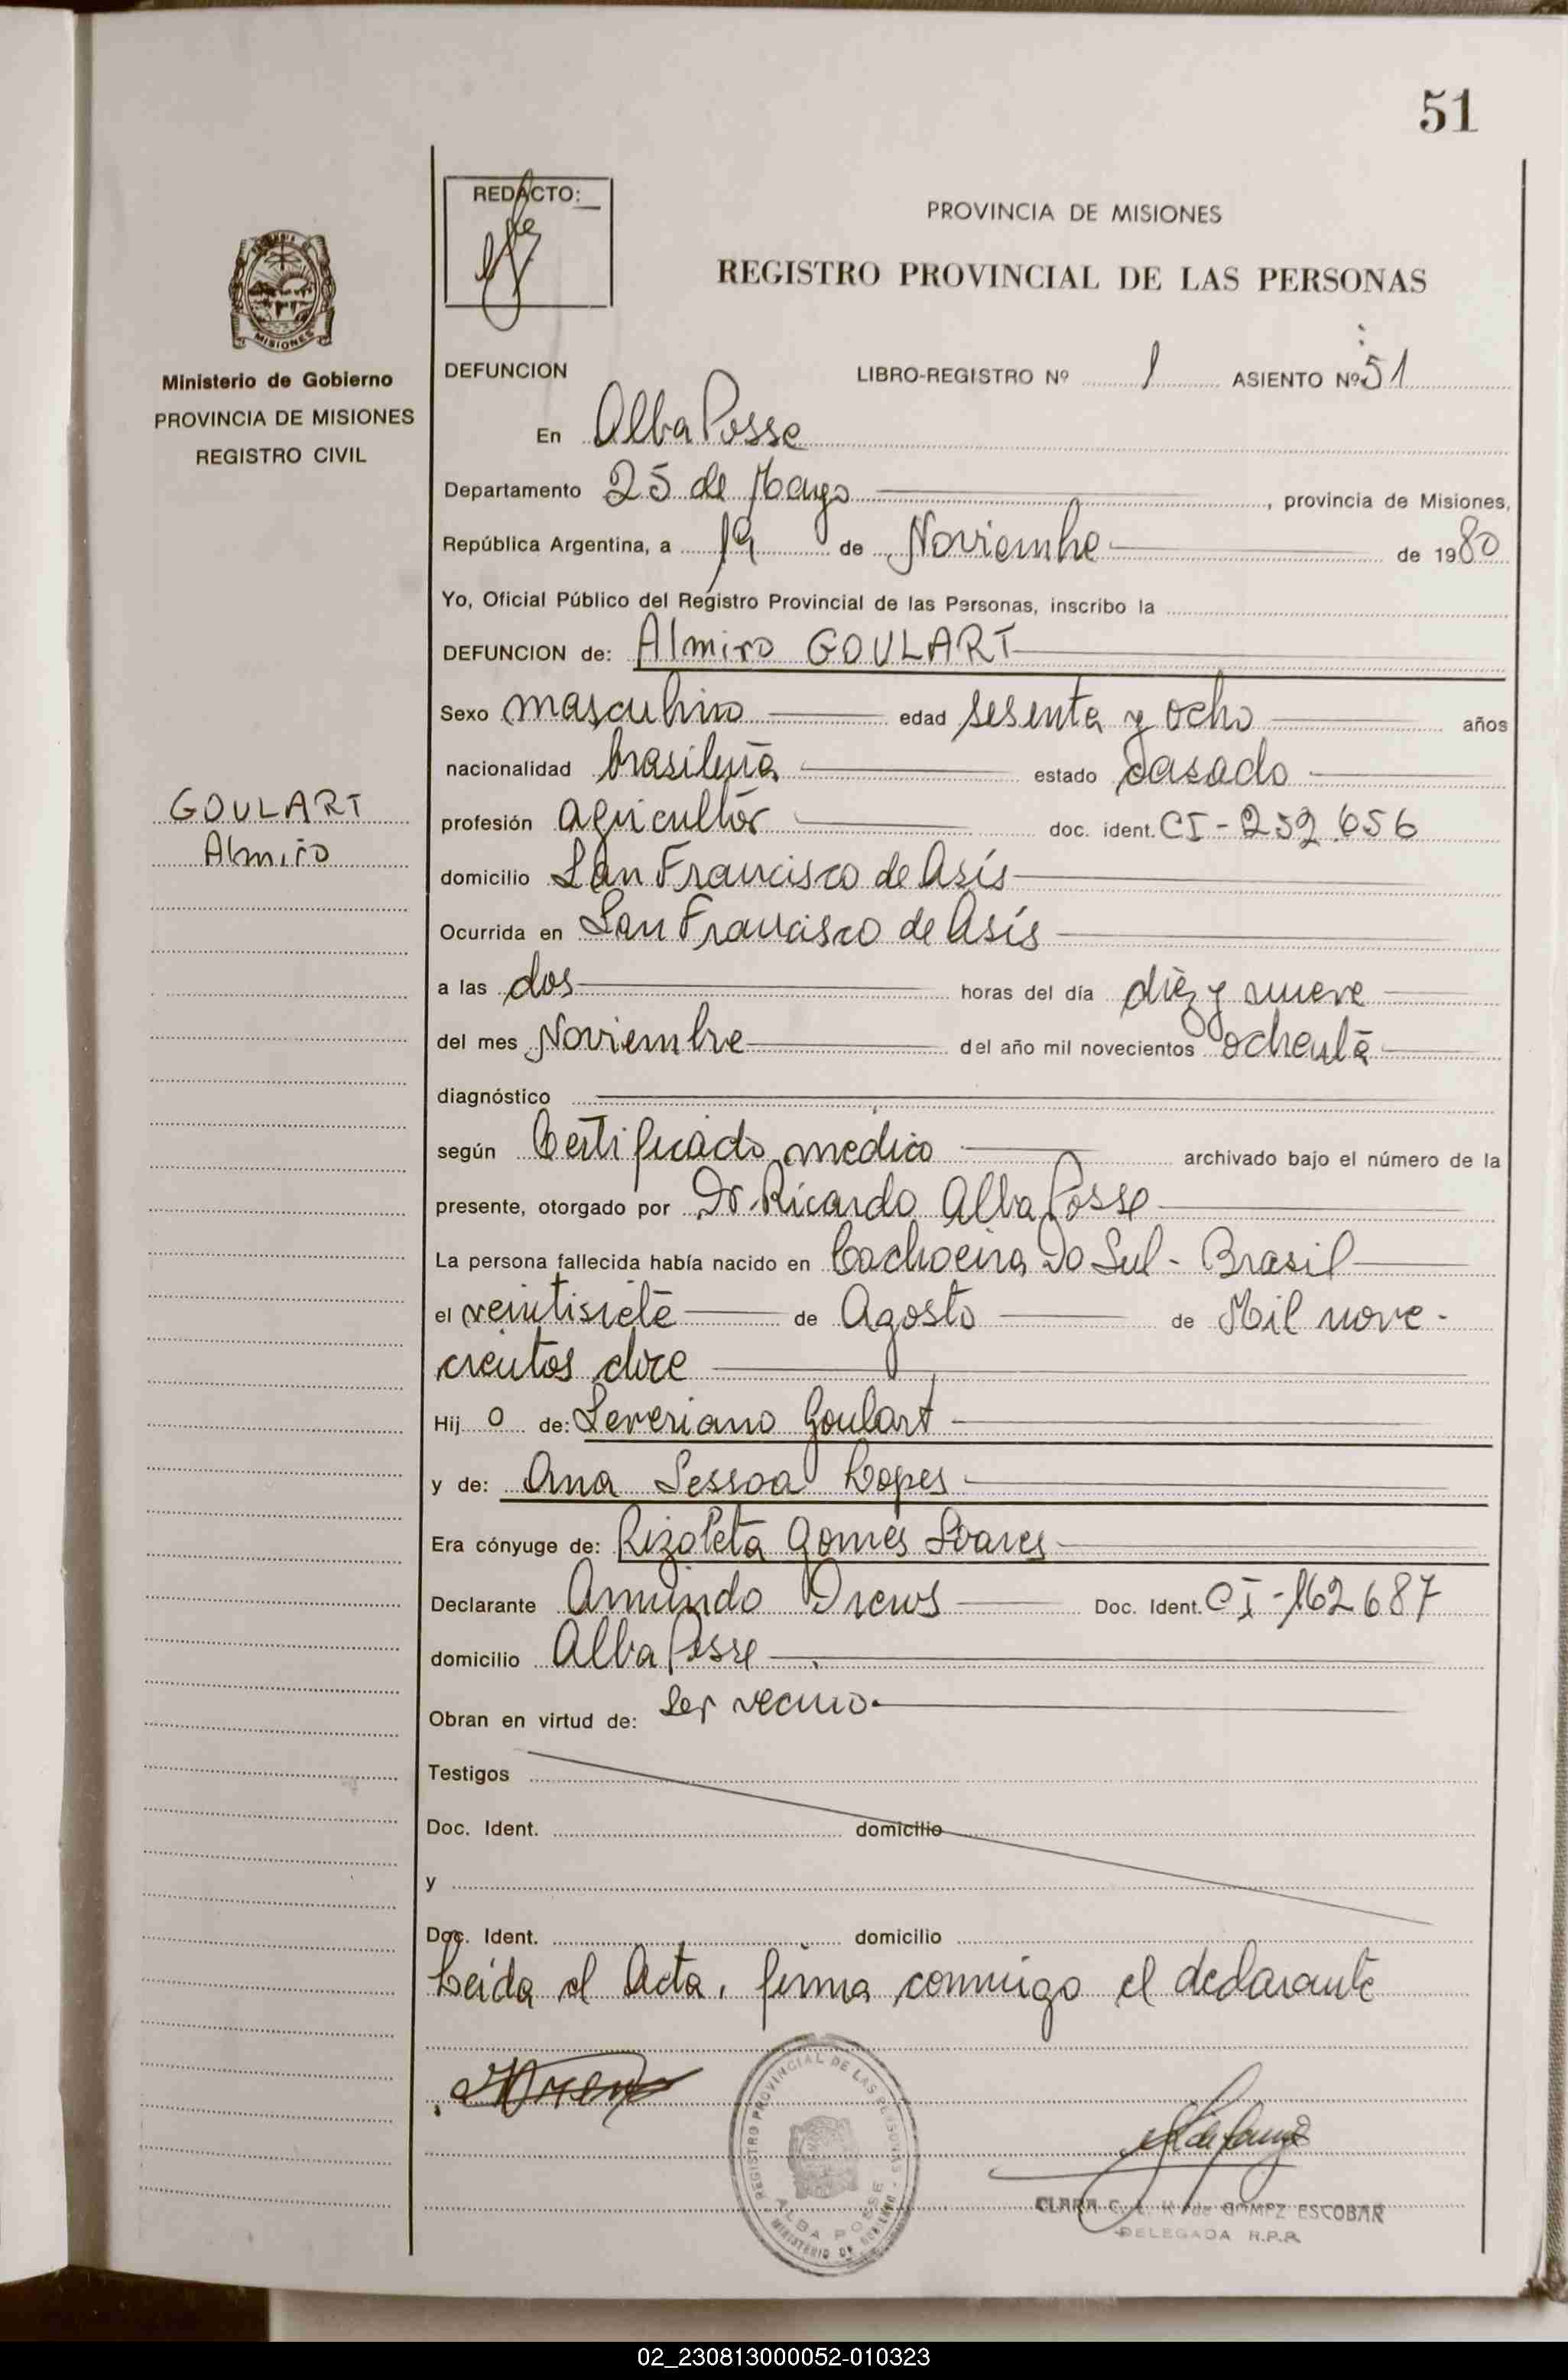 51
REDACTO:
PROVINCIA DE MISIONES
REGISTRO PROVINCIAL DE LAS PERSONAS
MISIONES
Ministerio de Gobierno
PROVINCIA DE MISIONES
REGISTRO CIVIL
GOULART
Almiro
DEFUNCION LIBRO-REGISTRO Nº 1 ASIENTO Nº 51
En Alba Posse
Departamento 25 de Mayo, provincia de Misiones,
República Argentina, a 19 de Noviembre de 1980
Yo, Oficial Público del Registro Provincial de las Personas, inscribo la
DEFUNCION de: Almiro GOULART
Sexo masculino edad sesenta y ocho años
nacionalidad brasileña estado casado
profesión agricultor doc. ident. CI-252.656
domicilio San Francisco de Asís
Ocurrida en San Francisco de Asís
a las dos horas del día diez y nueve
del mes Noviembre del año mil novecientos ochenta
diagnóstico
según Certificado medico archivado bajo el número de la
presente, otorgado por Dr. Ricardo Alba Posse
La persona fallecida había nacido en Cachoeira Do Sul - Brasil
el veintisiete de Agosto de Mil nove-
cientos doce
Hij o de: Severiano Goulart
y de: Ana Lopes
Era cónyuge de: Rizoleta Gomes Soares
Declarante Armindo Drews Doc. Ident. CI-162687
domicilio Alba Posse
Obran en virtud de: ser vecino.
Testigos
Doc. Ident. domicilio
y
Doc. Ident. domicilio
Leida el Acta, firma conmigo el declarante
REGISTRO PROVINCIAL DE LAS PERSONAS
ALBA POSSE
MINISTERIO DE GOBIERNO
CLARA de GOMEZ ESCOBAR
DELEGADA R.P.P.
02_230813000052-010323